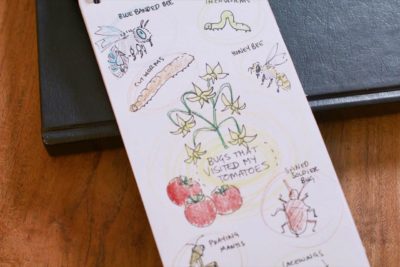 BLUE BANDED BEE
INCHWORMS
HONEY BEE
CUTWORMS
BUGS THAT
VISITED MY
TOMATOES
SPINED
SOLDIER
BUG
PRAYING
MANTIS
LACEWINGS